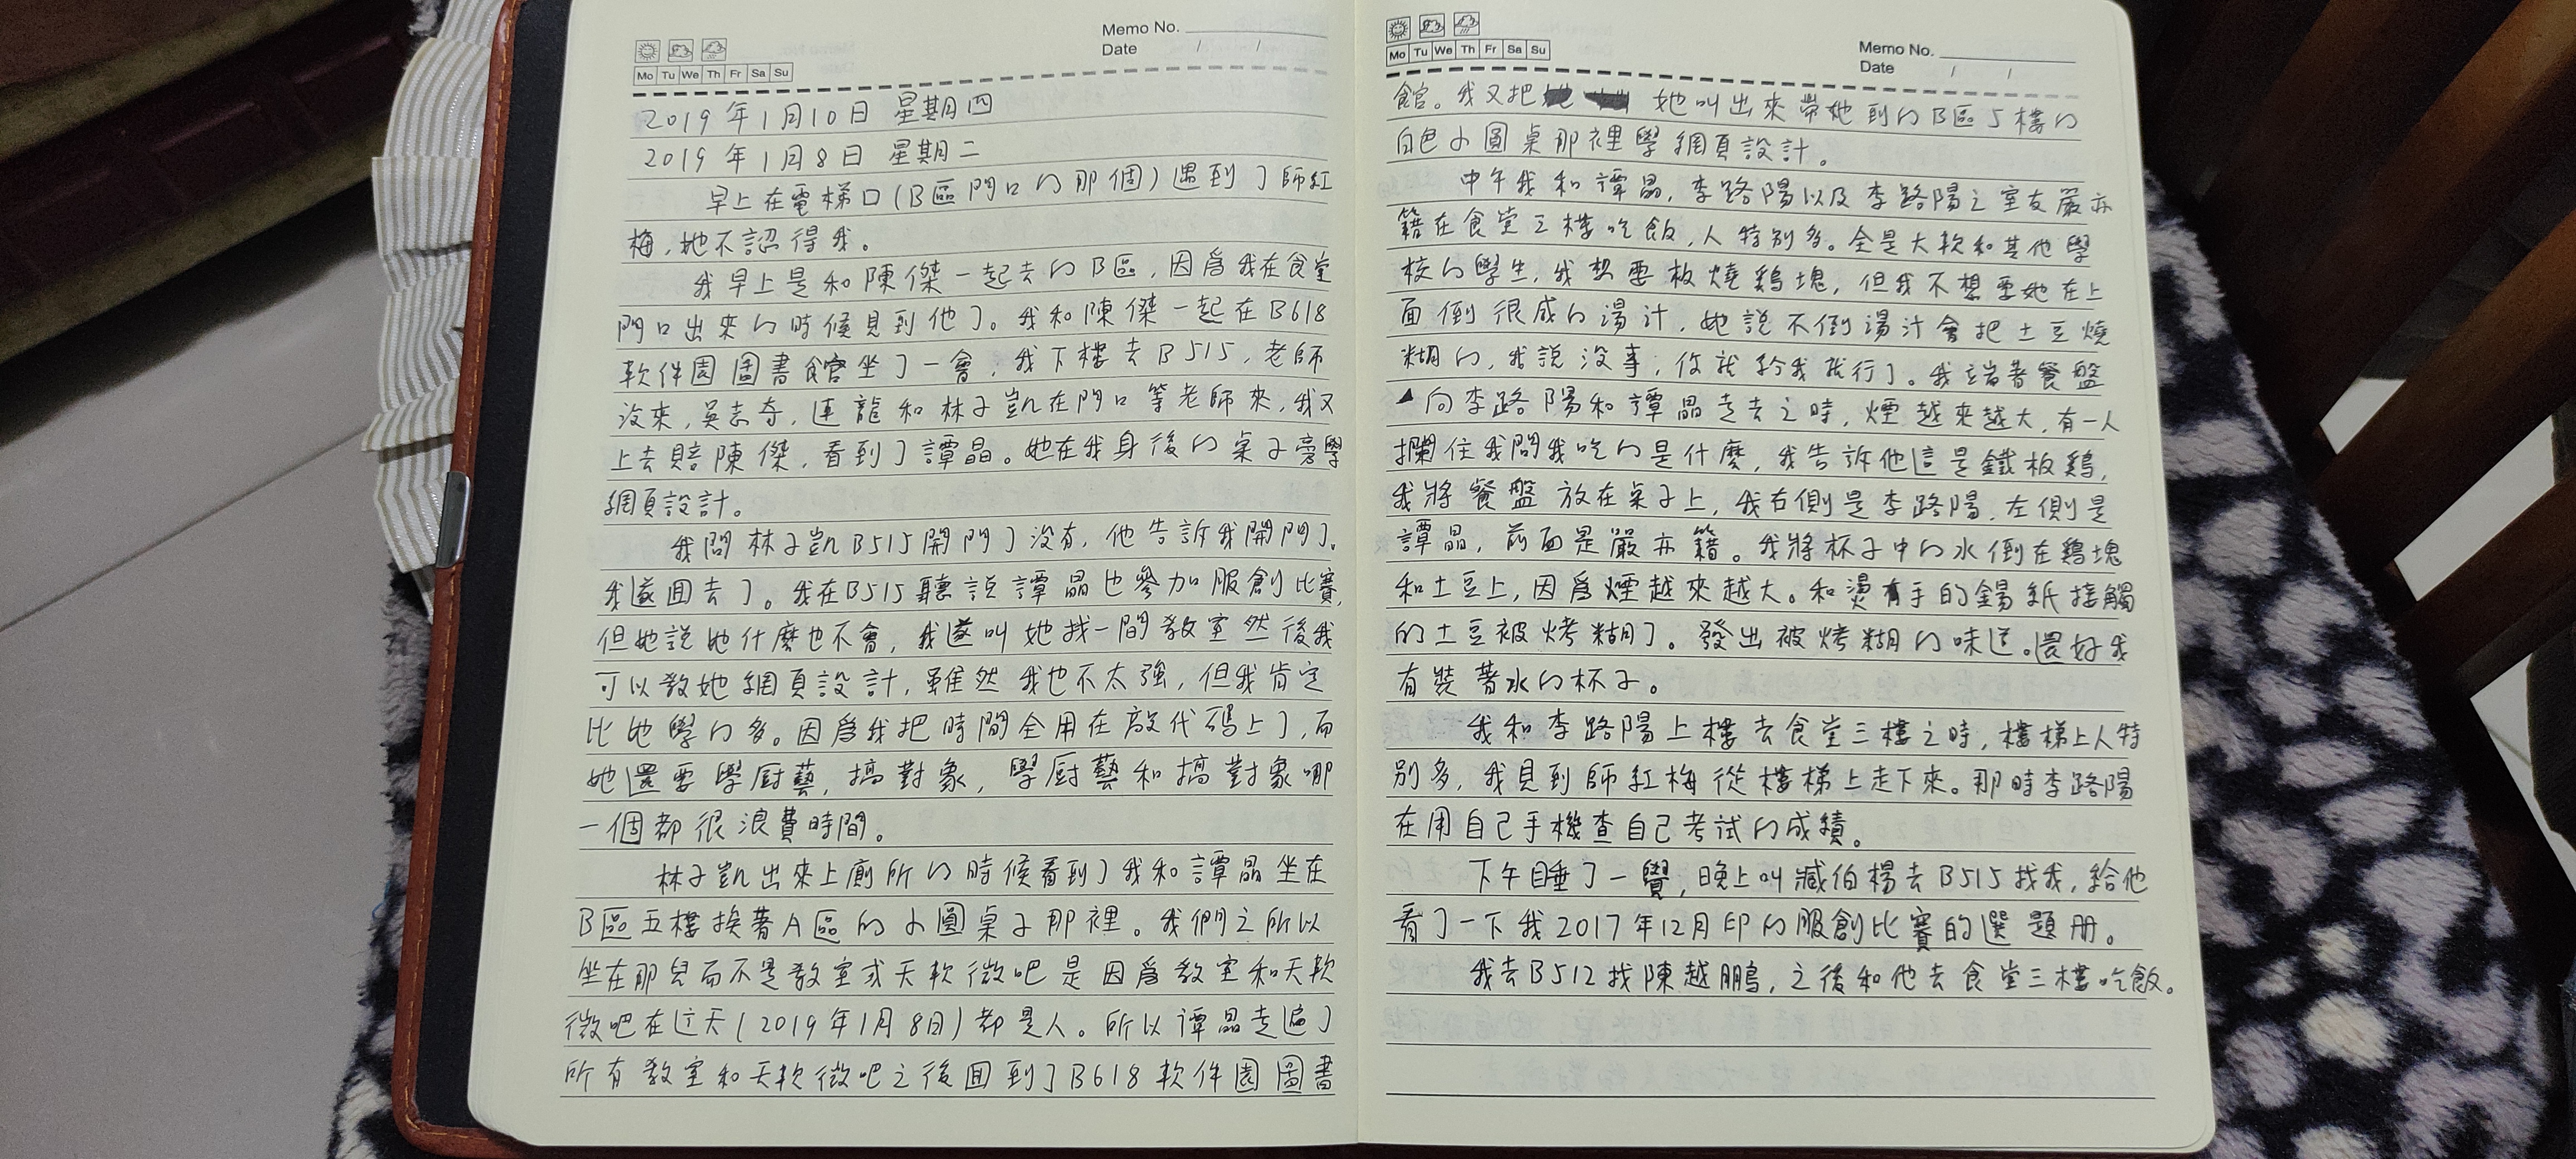 Memo No.
Date / /
Mo Tu We Th Fr Sa Su
2019年1月10日 星期四
2019年1月8日 星期二
早上在電梯口(B區門口的那個)遇到了師紅
梅,她不認得我。
我早上是和陳傑一起去的B區,因爲我在食堂
門口出來的時候見到他了。我和陳傑一起在B618
軟件園圖書館坐了一會,我下樓去B515,老師
沒來,吳志奇,連龍和林子凱在門口等老師來,我又
上去賠陳傑,看到了譚晶。她在我身後的桌子旁學
網頁設計。
我問林子凱B515開門了沒有,他告訴我開門了。
我遂回去了。我在B515聽說譚晶也參加服創比賽,
但她說她什麼也不會,我遂叫她找一間教室然後我
可以教她網頁設計,雖然我也不太強,但我肯定
比她學的多。因爲我把時間全用在敲代码上了,而
她還要學厨藝,搞對象,學厨藝和搞對象哪
一個都很浪費時間。
林子凱出來上廁所的時候看到了我和譚晶坐在
B區五樓挨著A區的小圓桌子那裡。我們之所以
坐在那兒而不是教室或天軟微吧是因爲教室和天軟
微吧在这天(2019年1月8日)都是人。所以譚晶走遍了
所有教室和天軟微吧之後回到了B618軟件園圖書
Memo No.
Date / /
Mo Tu We Th Fr Sa Su
館。我又把她叫出來帶她到的B區5樓的
白色小圓桌那裡學網頁設計。
中午我和譚晶,李路陽以及李路陽之室友嚴亦
籍在食堂三樓吃飯,人特別多。全是大軟和其他學
校的學生,我想要板燒鷄塊,但我不想要她在上
面倒很咸的湯汁,她說不倒湯汁會把土豆燒
糊的,我說沒事,你就給我就行了。我端著餐盤
向李路陽和譚晶走去之時,煙越來越大,有一人
攔住我問我吃的是什麼,我告訴他這是鐵板鷄,
我將餐盤放在桌子上,我右側是李路陽,左側是
譚晶,前面是嚴亦籍。我將杯子中的水倒在鷄塊
和土豆上,因爲煙越來越大。和燙有手的錫紙接觸
的土豆被烤糊了。發出被烤糊的味道。還好我
有裝著水的杯子。
我和李路陽上樓去食堂三樓之時,樓梯上人特
別多,我見到師紅梅從樓梯上走下來。那時李路陽
在用自己手機查自己考試的成績。
下午睡了一覺,晚上叫臧伯楊去B515找我,給他
看了一下我2017年12月印的服創比賽的選題册。
我去B512找陳越鵬,之後和他去食堂三樓吃飯。